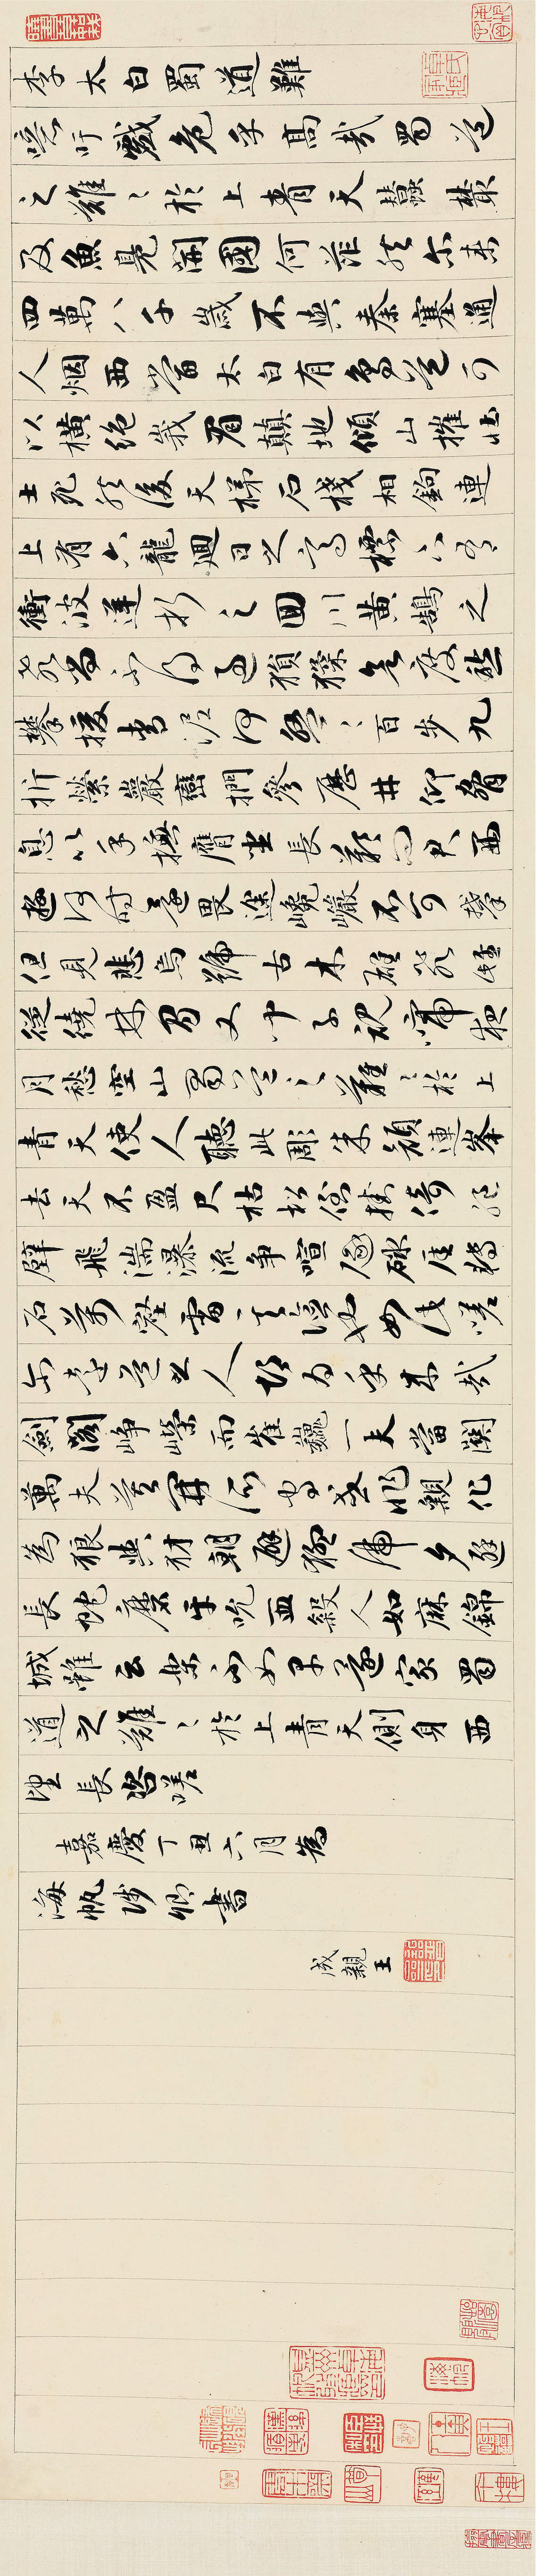 李太白蜀道難
噫吁戲危乎高哉蜀道
之難〻於上青天蠶叢
及魚鳧開國何茫然尔來
四萬八千歲不與秦塞通
人烟西當太白有鳥道可
以橫絕峩眉巔地傾山摧壯
士死然後天梯石棧相鉤連
上有六龍迴日之高標下有
衝波逆折之回川黃鵠之
飛尚不得過猿猱欲度愁
攀援青泥何盤〻百步九
折縈巖巒捫參歷井仰脅
息以手撫膺坐長歎問君西
遊何時還畏途巉巖不可攀
但見悲鳥號古木雄飛雌
從繞林間又聞子規啼夜
月愁空山蜀道之難〻於上
青天使人聽此彫朱顏連峯
去天不盈尺枯松倒挂倚絕
壁飛湍瀑流爭喧豗砯厓轉
石萬壑雷其險也如此嗟
尔遠道之人胡為乎來哉
劍閣崢嶸而崔巍一夫當關
萬夫莫開所守或非親化
為狼與豺朝避猛虎夕避
長蛇磨牙吮血殺人如麻錦
城雖云樂不如早還家蜀
道之難〻於上青天側身西
望長咨嗟
嘉慶丁丑六月為
海帆侍卿書
成親王